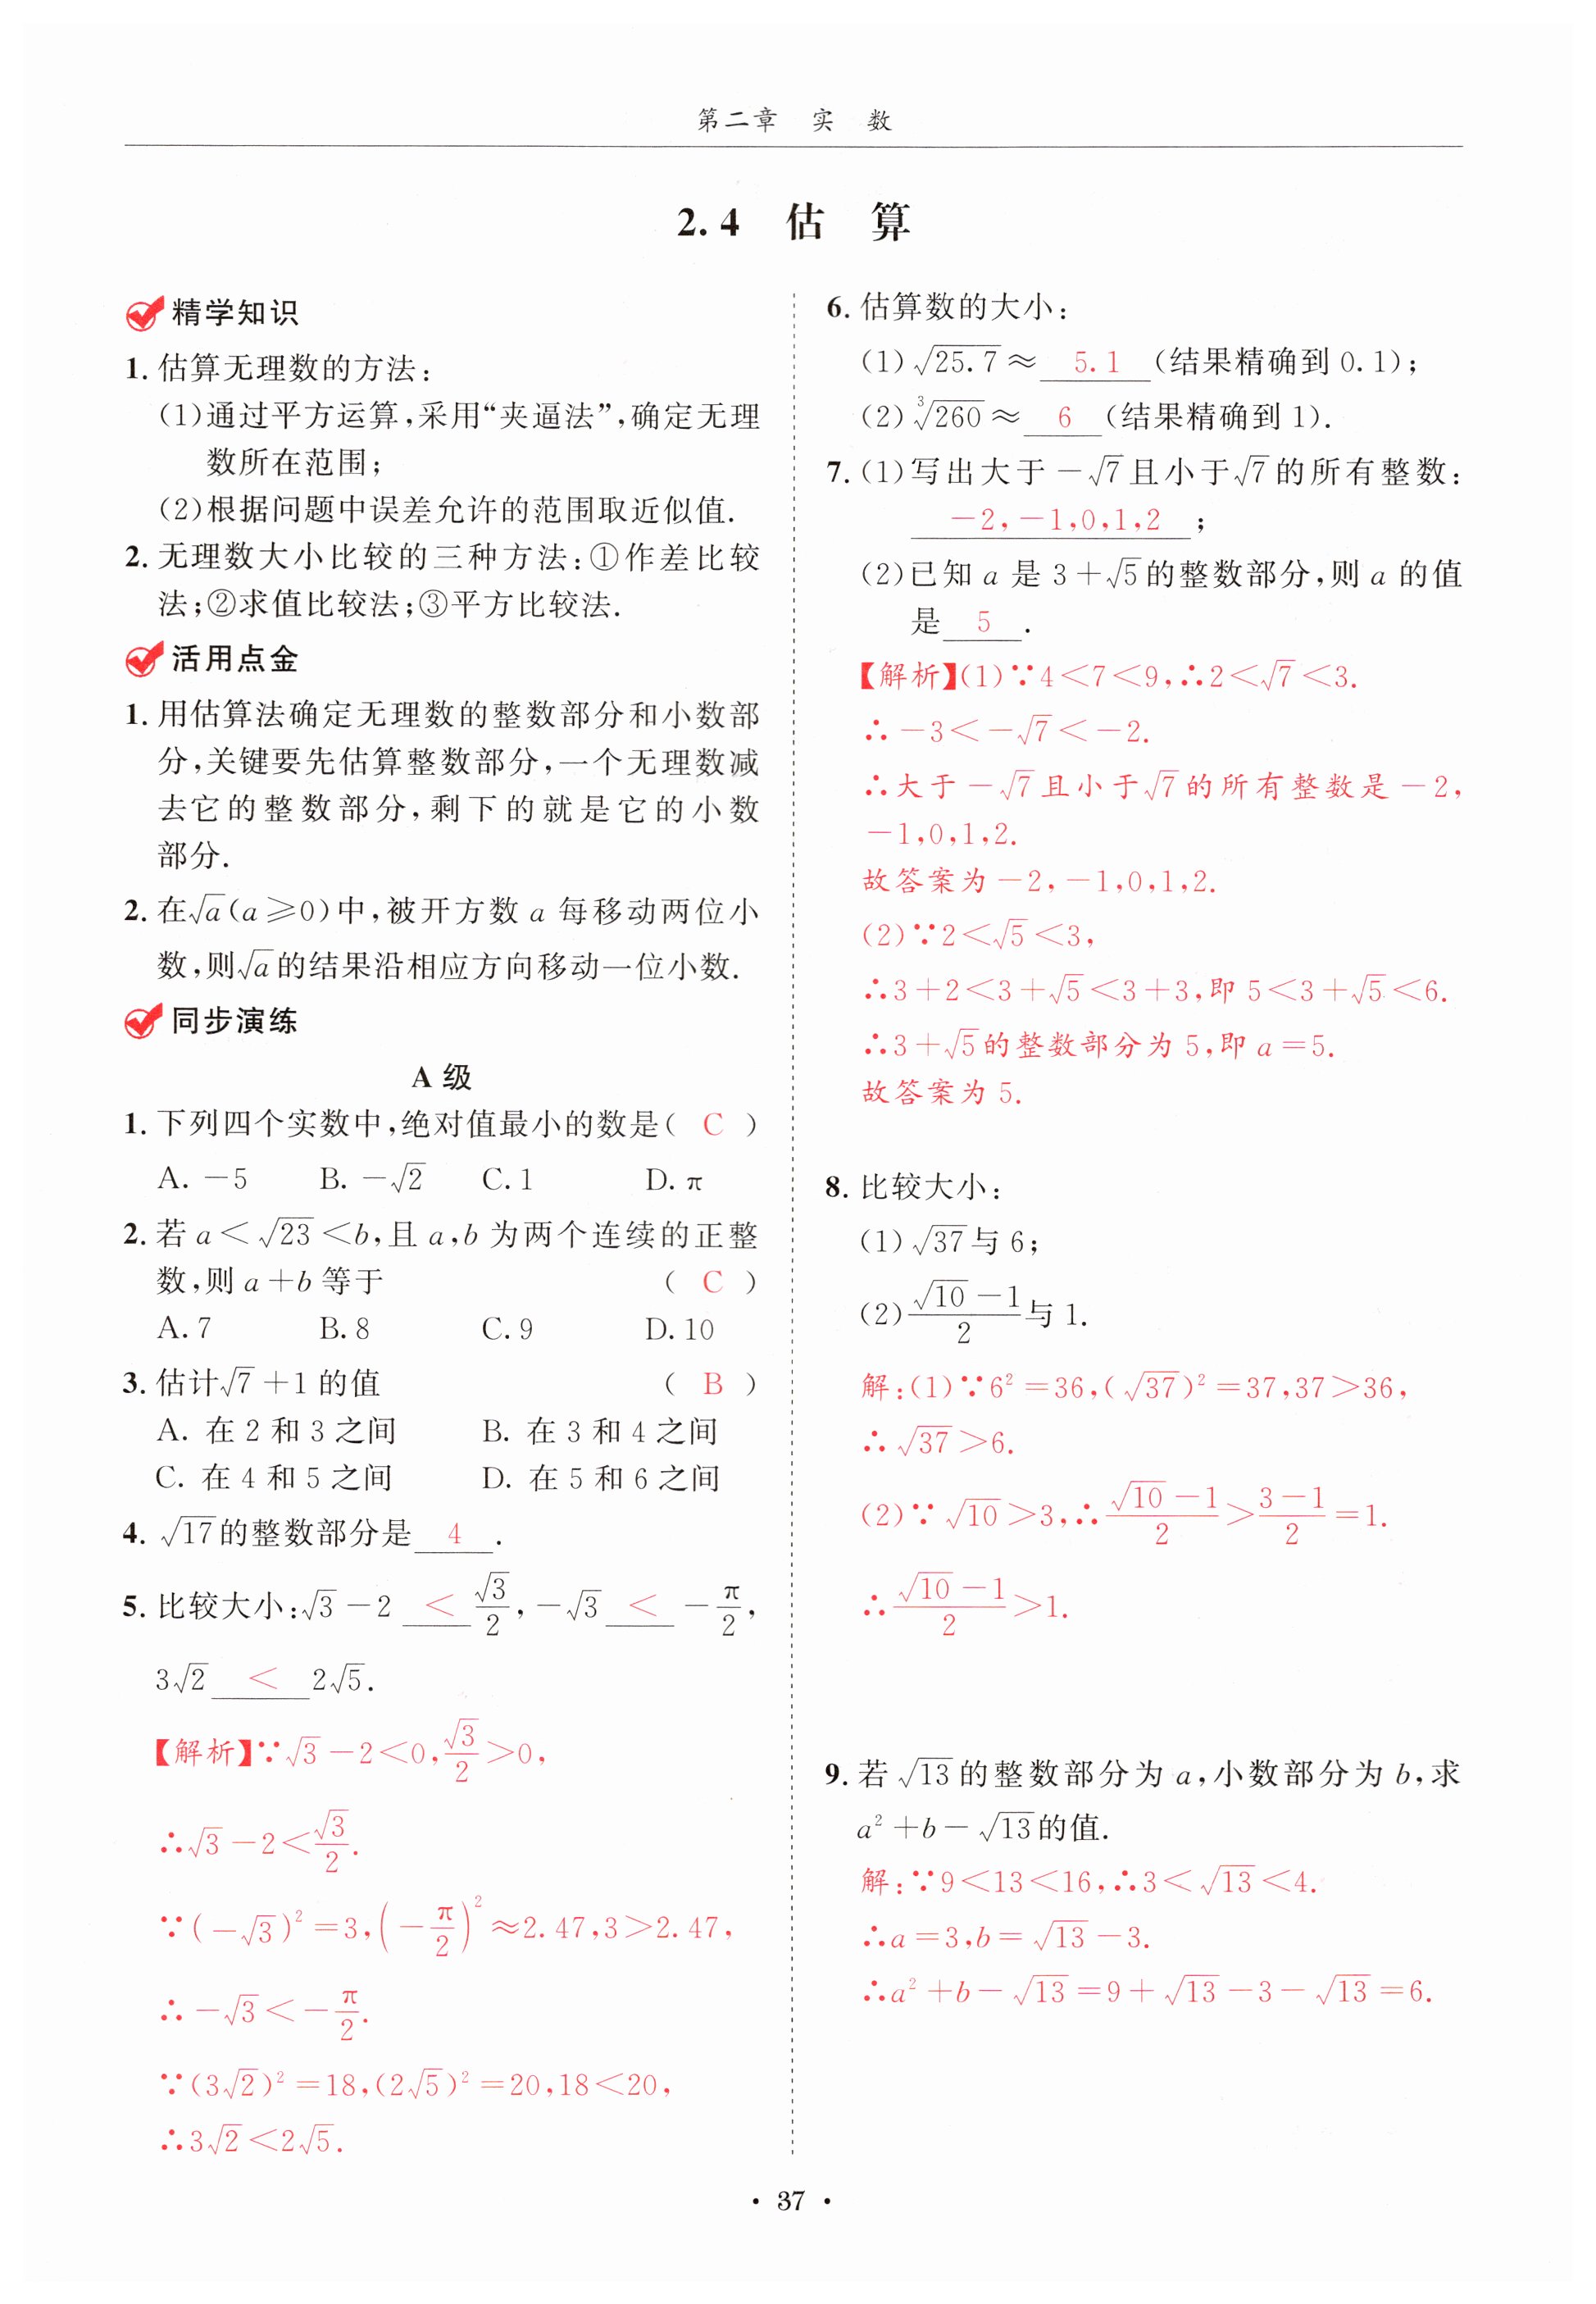 第二章 实 数
2.4 估 算
精学知识
1. 估算无理数的方法:
(1)通过平方运算,采用“夹逼法”,确定无理
数所在范围;
(2)根据问题中误差允许的范围取近似值.
2. 无理数大小比较的三种方法:①作差比较
法;②求值比较法;③平方比较法.
活用点金
1. 用估算法确定无理数的整数部分和小数部
分,关键要先估算整数部分,一个无理数减
去它的整数部分,剩下的就是它的小数
部分.
2. 在√a(a≥0)中,被开方数 a 每移动两位小
数,则√a的结果沿相应方向移动一位小数.
同步演练
A 级
1. 下列四个实数中,绝对值最小的数是( C )
A. －5 B. －√2 C. 1 D. π
2. 若 a＜√23＜b,且 a,b 为两个连续的正整
数,则 a＋b 等于 ( C )
A. 7 B. 8 C. 9 D. 10
3. 估计√7＋1 的值 ( B )
A. 在 2 和 3 之间 B. 在 3 和 4 之间
C. 在 4 和 5 之间 D. 在 5 和 6 之间
4. √17的整数部分是 4 .
5. 比较大小:√3－2 ＜ √3/2, －√3 ＜ －π/2,
3√2 ＜ 2√5.
【解析】∵√3－2＜0,√3/2＞0,
∴√3－2＜√3/2.
∵(－√3)²＝3,(－π/2)²≈2.47,3＞2.47,
∴－√3＜－π/2.
∵(3√2)²＝18,(2√5)²＝20,18＜20,
∴3√2＜2√5.
6. 估算数的大小:
(1)√25.7≈ 5.1 (结果精确到 0.1);
(2)³√260≈ 6 (结果精确到 1).
7. (1)写出大于－√7且小于√7的所有整数:
－2,－1,0,1,2 ;
(2)已知 a 是 3＋√5的整数部分,则 a 的值
是 5 .
【解析】(1)∵4＜7＜9,∴2＜√7＜3.
∴－3＜－√7＜－2.
∴大于－√7且小于√7的所有整数是－2,
－1,0,1,2.
故答案为－2,－1,0,1,2.
(2)∵2＜√5＜3,
∴3＋2＜3＋√5＜3＋3,即 5＜3＋√5＜6.
∴3＋√5的整数部分为 5,即 a＝5.
故答案为 5.
8. 比较大小:
(1)√37与 6;
(2)(√10－1)/2与 1.
解:(1)∵6²＝36,(√37)²＝37,37＞36,
∴√37＞6.
(2)∵√10＞3,∴(√10－1)/2＞(3－1)/2＝1.
∴(√10－1)/2＞1.
9. 若√13的整数部分为 a,小数部分为 b,求
a²＋b－√13的值.
解:∵9＜13＜16,∴3＜√13＜4.
∴a＝3,b＝√13－3.
∴a²＋b－√13＝9＋√13－3－√13＝6.
· 37 ·